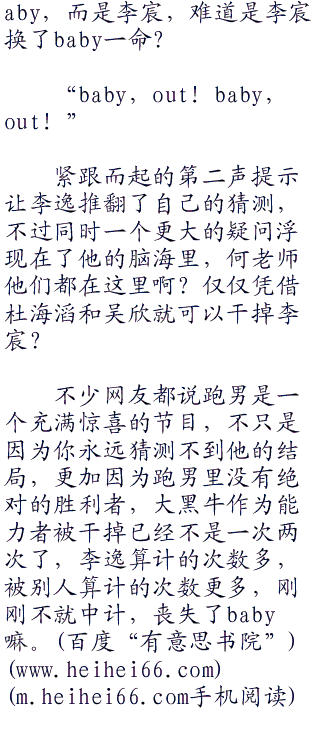 aby，而是李宸，难道是李宸
换了baby一命？
“baby，out！baby，
out！”
紧跟而起的第二声提示
让李逸推翻了自己的猜测，
不过同时一个更大的疑问浮
现在了他的脑海里，何老师
他们都在这里啊？仅仅凭借
杜海滔和吴欣就可以干掉李
宸？
不少网友都说跑男是一
个充满惊喜的节目，不只是
因为你永远猜测不到他的结
局，更加因为跑男里没有绝
对的胜利者，大黑牛作为能
力者被干掉已经不是一次两
次了，李逸算计的次数多，
被别人算计的次数更多，刚
刚不就中计，丧失了baby
嘛。(百度“有意思书院”)
(www.heihei66.com)
(m.heihei66.com手机阅读)